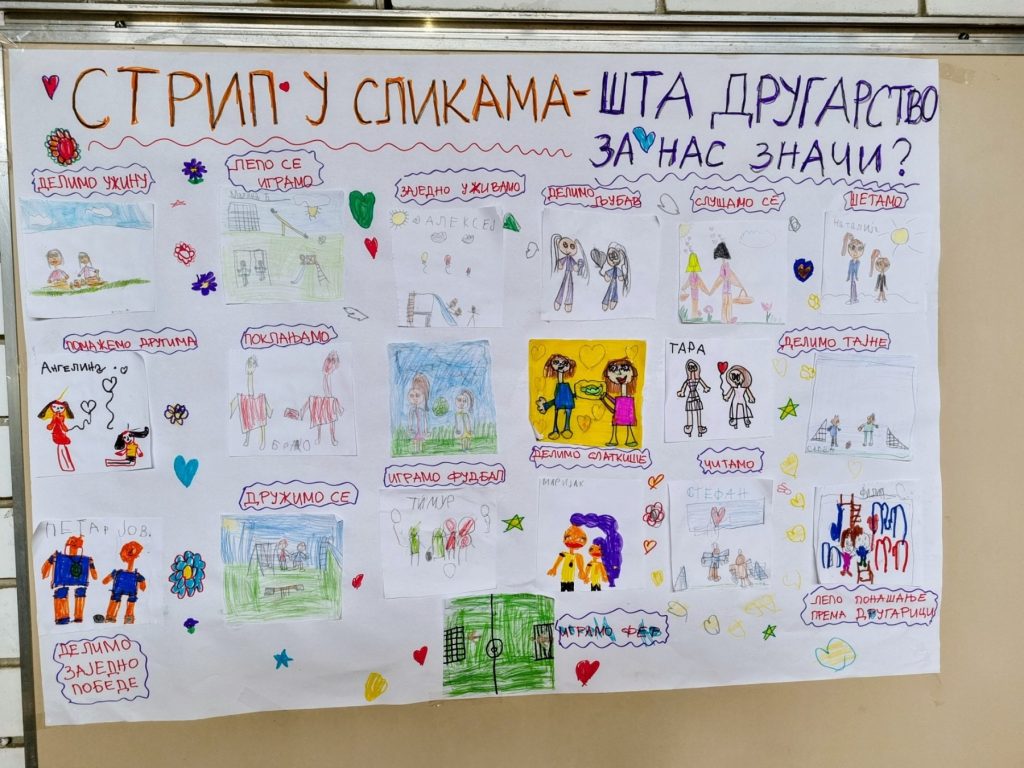 СТРИП У СЛИКАМА - ШТА ДРУГАРСТВО
ЗА НАС ЗНАЧИ?
ДЕЛИМО УЖИНУ
ЛЕПО СЕ
ИГРАМО
ЗАЈЕДНО УЖИВАМО
ДЕЛИМО
ЉУБАВ
СЛУШАМО СЕ
ШЕТАМО
АЛЕКСЕЈ
НАТАЛИЈА
ПОМАЖЕМО ДРУГИМА
ПОКЛАЊАМО
ДЕЛИМО ТАЈНЕ
АНГЕЛИНА
ТАРА
ИГРАМО ФУДБАЛ
ДЕЛИМО СЛАТКИШЕ
ЧИТАМО
ДРУЖИМО СЕ
ПЕТАР ЈОВ.
ТИМУР
СТЕФАН
ЛЕПО ПОНАШАЊЕ
ПРЕМА ДРУГАРИЦИ
ИГРАМО
ДЕЛИМО
ЗАЈЕДНО
ПОБЕДЕ